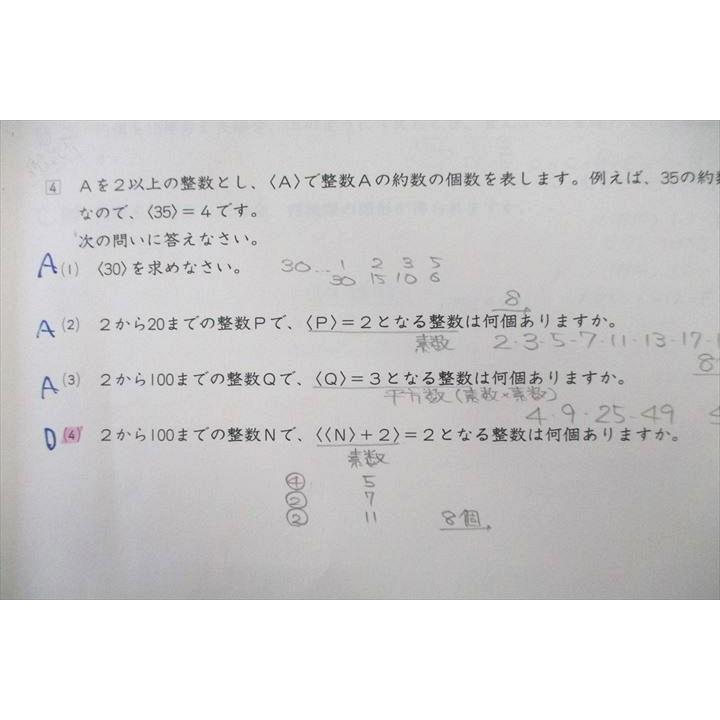 4 Aを2以上の整数とし、〈A〉で整数Aの約数の個数を表します。例えば、35の約数
なので、〈35〉=4です。
次の問いに答えなさい。
A (1) 〈30〉を求めなさい。 30… 1 2 3 5
30 15 10 6
8
A (2) 2から20までの整数Pで、〈P〉=2となる整数は何個ありますか。
素数 2・3・5・7・11・13・17・1
8
A (3) 2から100までの整数Qで、〈Q〉=3となる整数は何個ありますか。
平方数(素数×素数)
4・9・25・49
D (4) 2から100までの整数Nで、〈〈N〉+2〉=2となる整数は何個ありますか。
素数
④ 5
② 7
② 11 8個